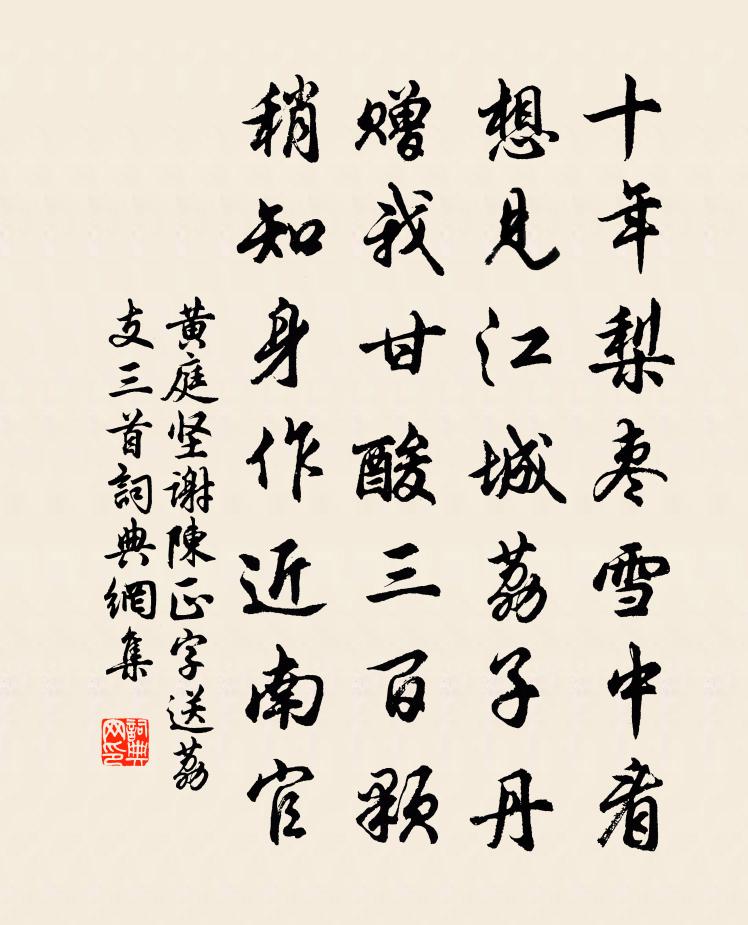 十年梨枣雪中看
想见江城荔子丹
赠我甘酸三百颗
稍知身作近南官
黄庭坚谢陳正字送荔
支三首詞典網集
詞典網印